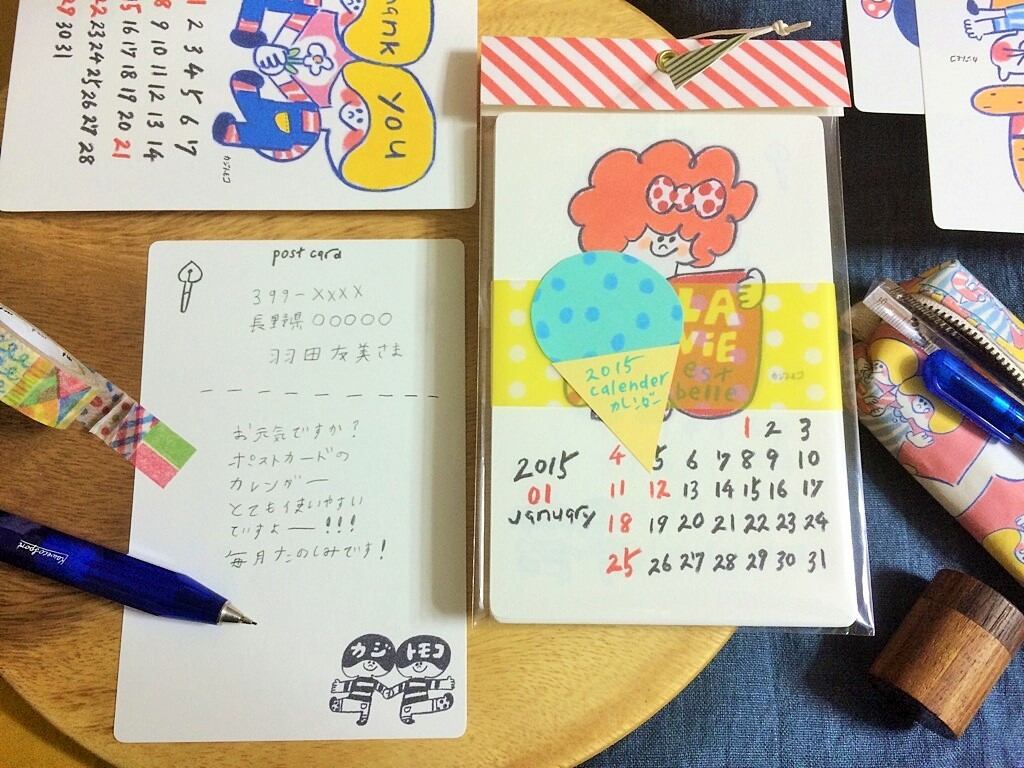 Thank
YOU
カジトモコ
1 2 3
4 5 6 7
8 9 10 11 12 13 14
15 16 17 18 19 20 21
22 23 24 25 26 27 28
29 30 31
post card
399-××××
長野県○○○○○
羽田友美さま
お元気ですか?
ポストカードの
カレンダー
とても使いやすい
ですよー!!!
毎月たのしみです!
カジ トモコ
KawecoSport
LA
ViE
est
belle
カジトモコ
2015
calender
カレンダー
2015
01
january
1 2 3
4 5 6 7 8 9 10
11 12 13 14 15 16 17
18 19 20 21 22 23 24
25 26 27 28 29 30 31
カジトモコ